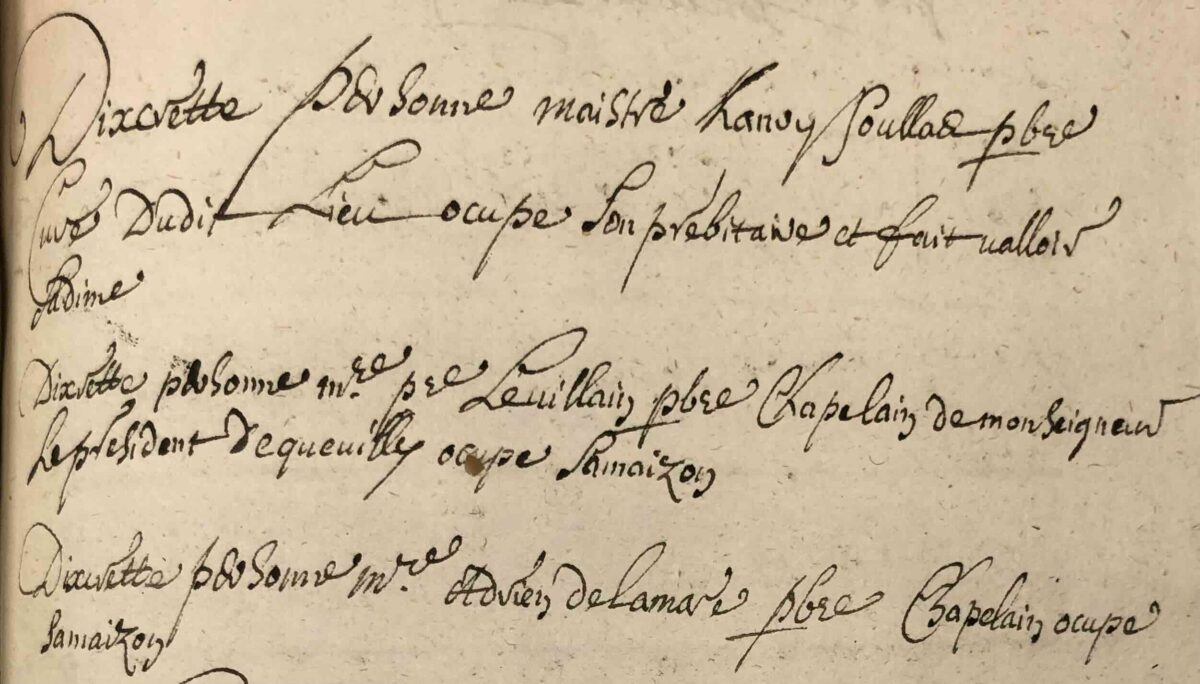 Dixcrette personne maistre Lanoy Poullac pbre
Curé Dudit Lieu ocupe son prebitaire et fait valloir
sa dime
Dixcrette personne mre pre Levillain pbre Chapelain de monseigneur
le president Dequevilly ocupe sa maizon
Dixcrette personne mre Adrien delamare pbre Chapelain ocupe
sa maizon